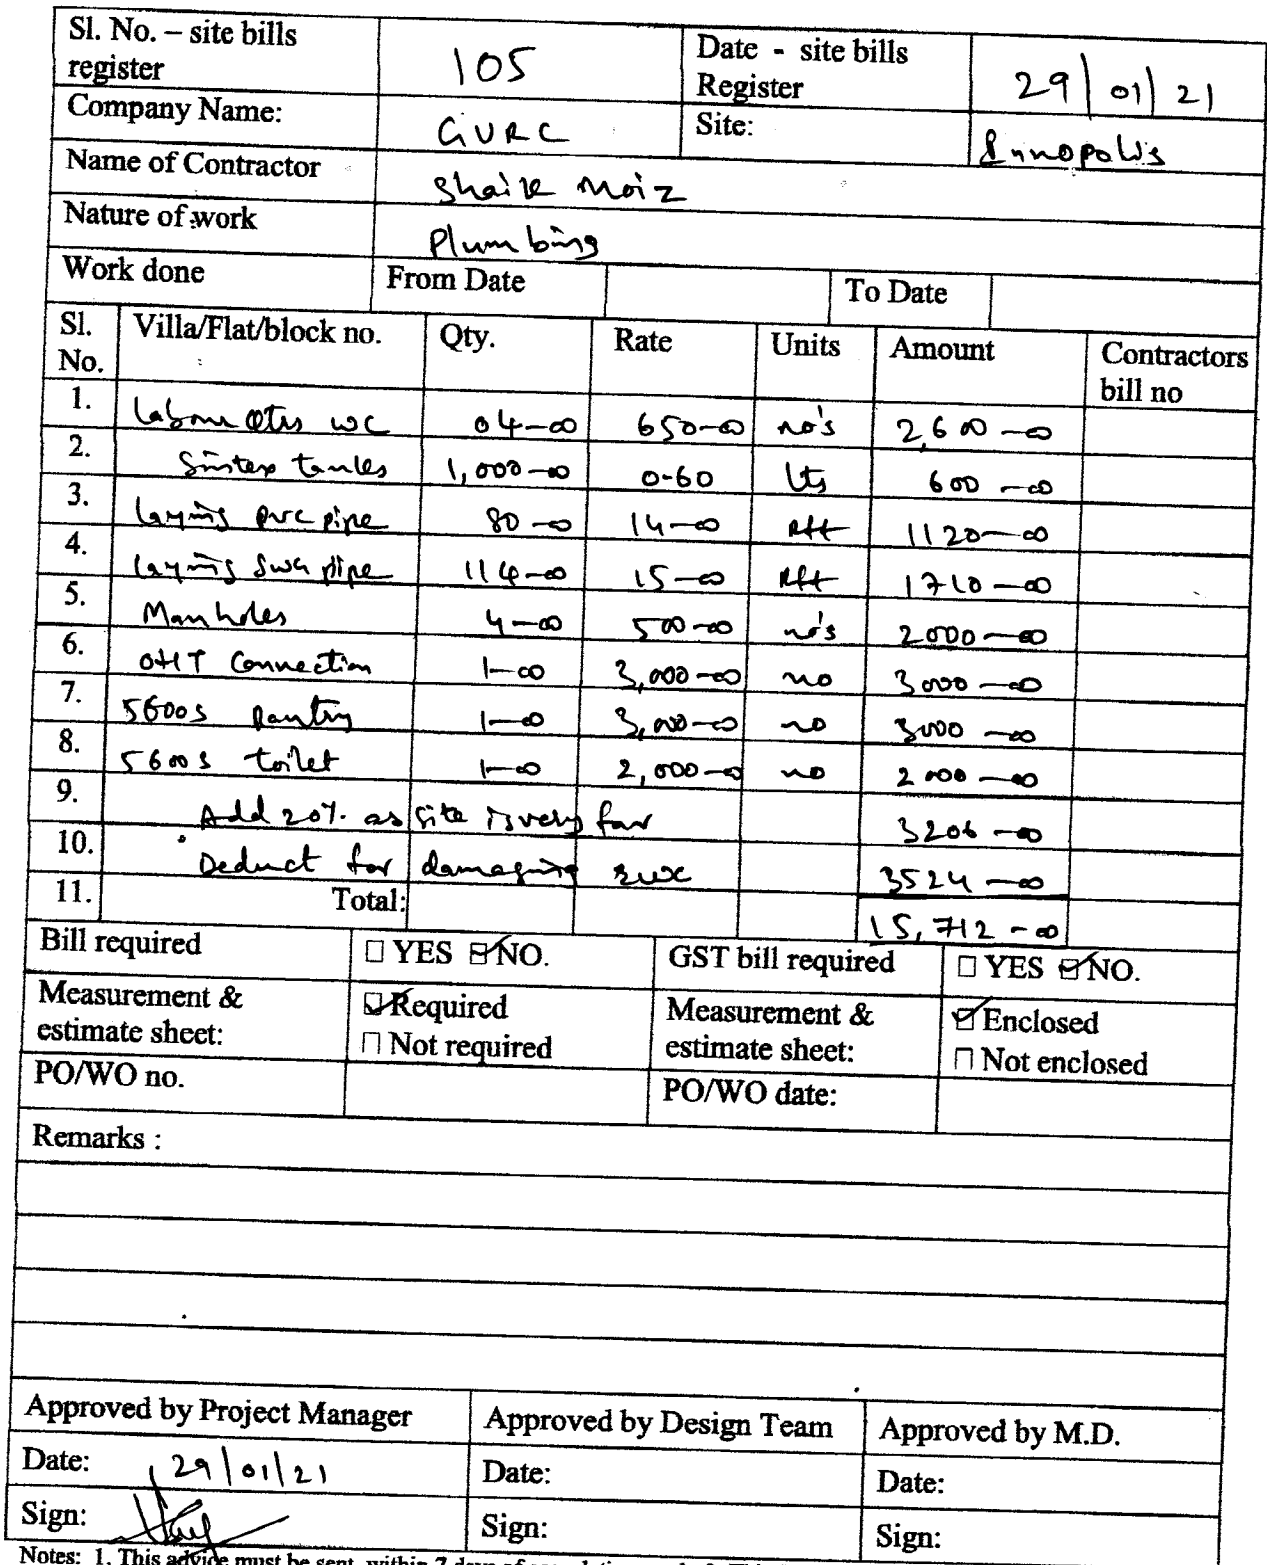 Sl. No. – site bills register 105 Date - site bills Register 29/01/21
Company Name: GVRC Site: Innopolis
Name of Contractor Shaik Moiz
Nature of work Plumbing
Work done From Date To Date
Sl. No. Villa/Flat/block no. Qty. Rate Units Amount Contractors bill no
1. labour Qtrs WC 04-00 650-00 no's 2,600-00
2. Sintex tanks 1,000-00 0-60 lts 600-00
3. laying pvc pipe 80-00 14-00 Rft 1120-00
4. laying SWR pipe 114-00 15-00 Rft 1710-00
5. Manholes 4-00 500-00 no's 2000-00
6. OHT Connection 1-00 3,000-00 no 3000-00
7. 5600S pantry 1-00 3,000-00 no 3000-00
8. 5600S toilet 1-00 2,000-00 no 2000-00
9. Add 20% as site is very far 3206-00
10. Deduct for damaging 3524-00
11. Total: 15,712-00
Bill required ☐ YES ☑ NO. GST bill required ☐ YES ☑ NO.
Measurement & estimate sheet: ☑ Required ☐ Not required Measurement & estimate sheet: ☑ Enclosed ☐ Not enclosed
PO/WO no. PO/WO date:
Remarks :
Approved by Project Manager Approved by Design Team Approved by M.D.
Date: 29/01/21 Date: Date:
Sign: Sign: Sign:
Notes: 1. This advice must be sent within 7 days of